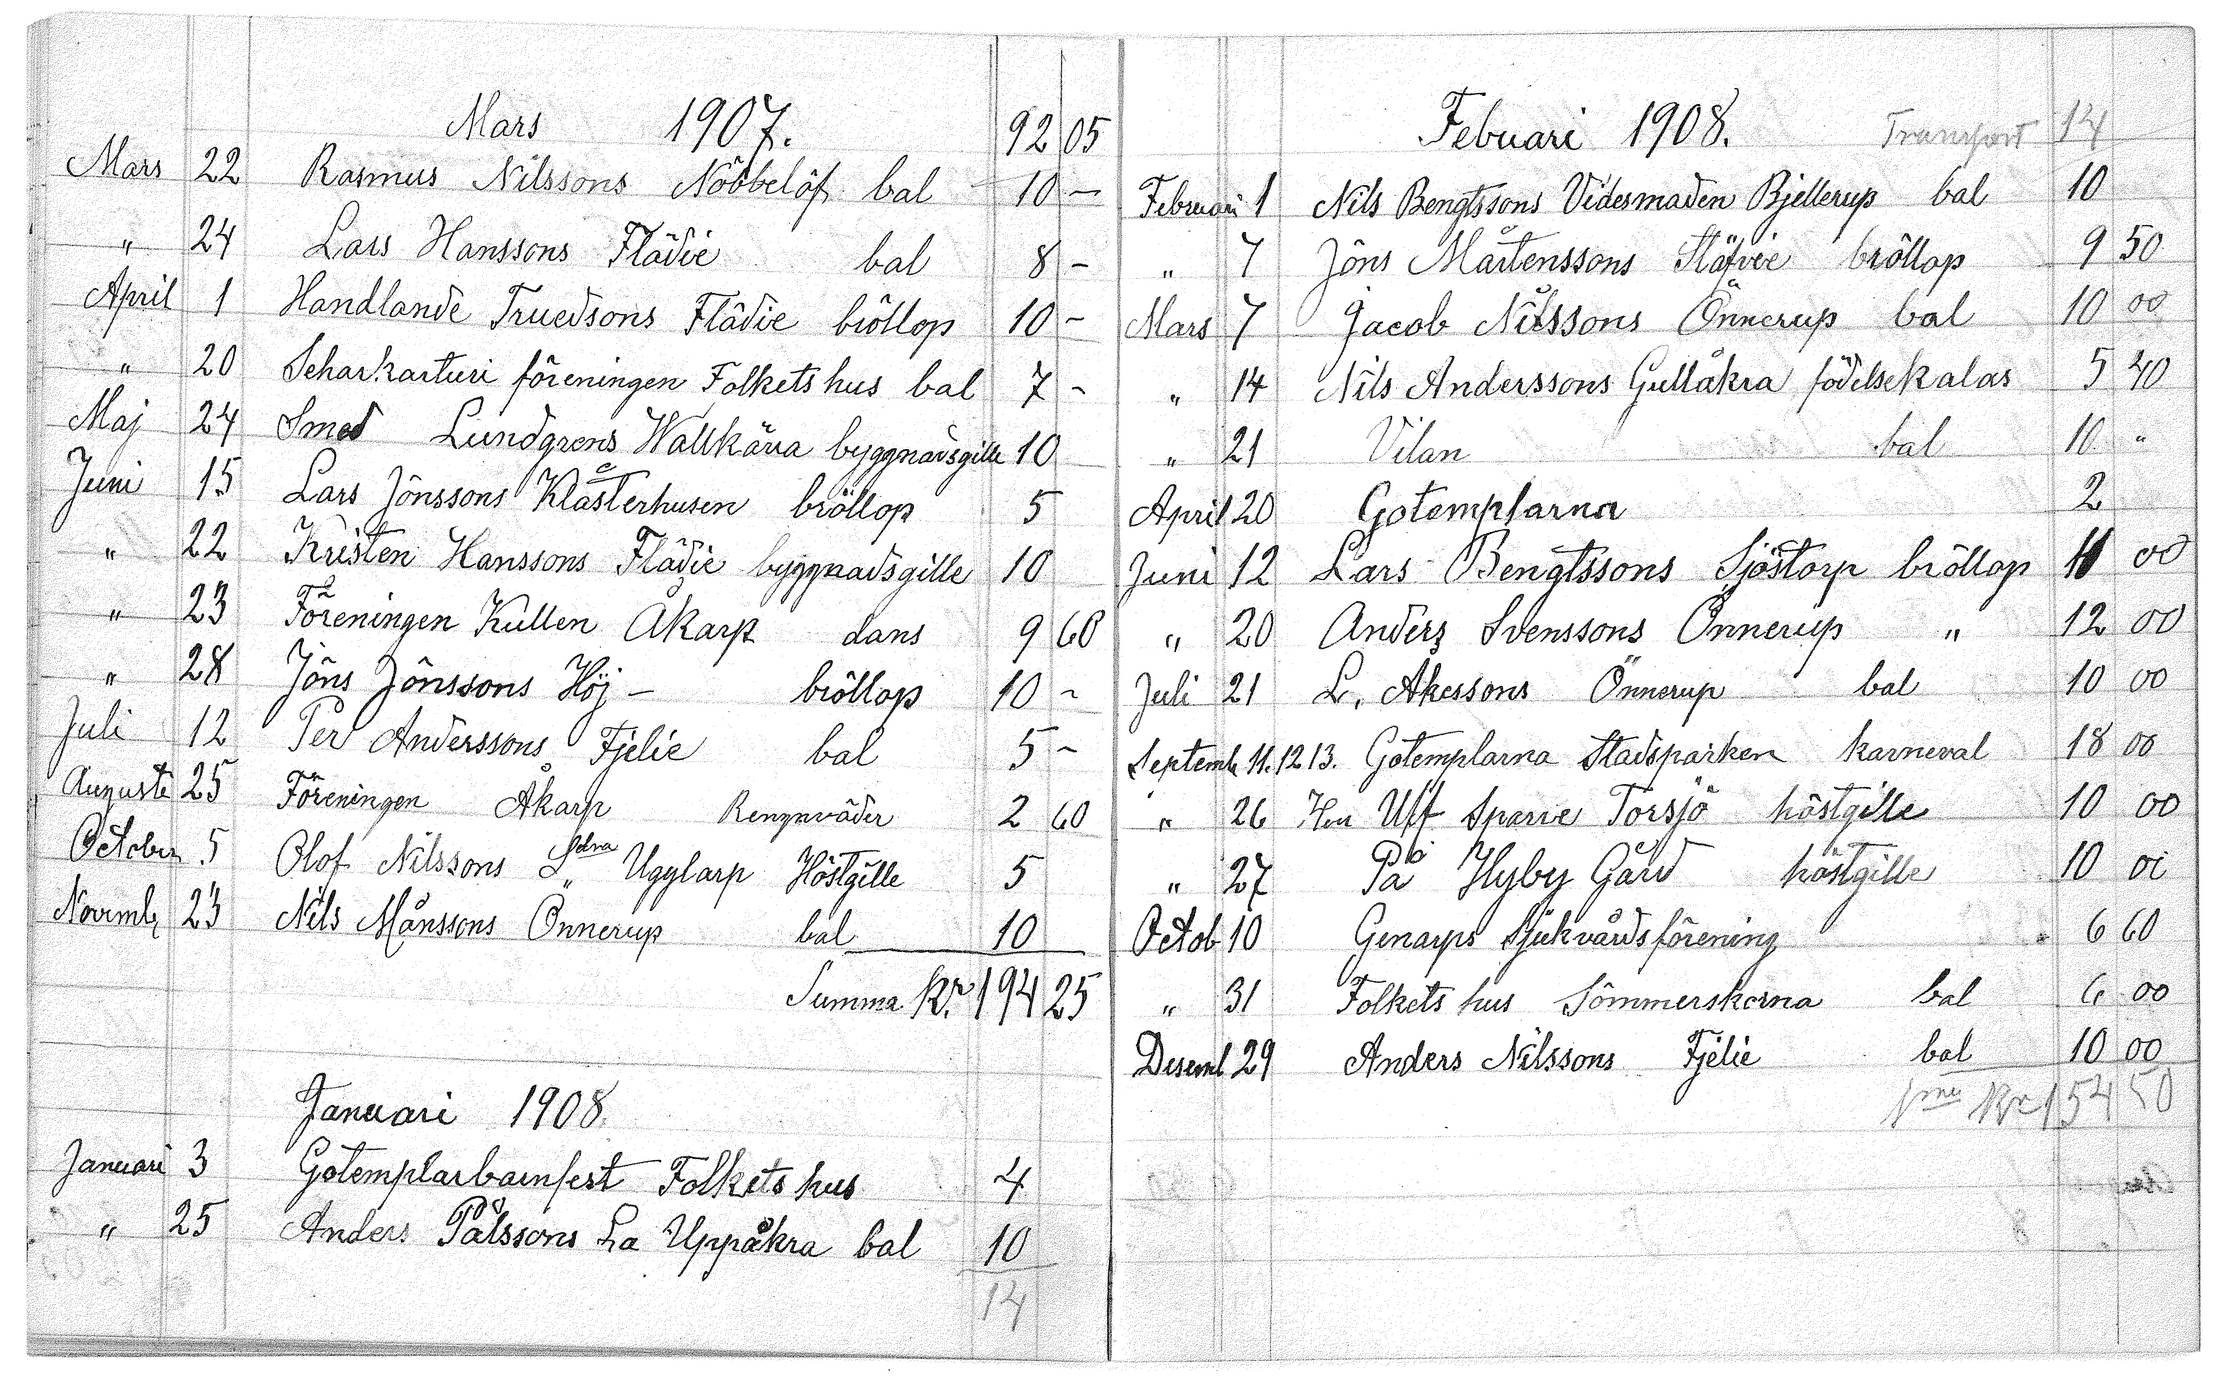 Mars 1907. 92 05
Mars 22 Rasmus Nilssons Nöbbelöf bal 10 —
„ 24 Lars Hanssons Flädie bal 8 –
April 1 Handlande Truedsons Flädie bröllop 10 –
„ 20 Scharkarturi föreningen Folkets hus bal 7 –
Maj 24 Smed Lundgrens Wallkärra byggnadsgille 10
Juni 15 Lars Jönssons Klåsterhusen bröllop 5
„ 22 Kristen Hanssons Flädie byggnadsgille 10
„ 23 Föreningen Kullen Åkarp dans 9 60
„ 28 Jöns Jönssons Höj – bröllop 10 –
Juli 12 Per Anderssons Fjelie bal 5 –
Auguste 25 Föreningen Åkarp Rengnväder 2 60
October 5 Olof Nilssons Sdra Ugglarp Höstgille 5
Novemb 23 Nils Månssons Önnerup bal 10
Summa Kr. 194 25
Januari 1908.
Januari 3 Gotemplarbarnfest Folkets hus 4
„ 25 Anders Pålssons La Uppåkra bal 10
14
Febuari 1908. Transport 14
Februari 1 Nils Bengtssons Videsmaden Bjellerup bal 10
„ 7 Jöns Mårtenssons Stäfvie bröllop 9 50
Mars 7 Jacob Nilssons Önnerup bal 10 00
„ 14 Nils Anderssons Gullåkra födelsekalas 5 40
„ 21 Vilan bal 10 „
April 20 Gotemplarna 2
Juni 12 Lars Bengtssons Sjöstorp bröllop 11 00
„ 20 Anders Svenssons Önnerup „ 12 00
Juli 21 L. Akessons Önnerup bal 10 00
Septemb 11. 12 13. Gotemplarna Stadsparken karneval 18 00
„ 26 Herr Uff Sparre Torsjö höstgille 10 00
„ 27 På Hyby Gård höstgille 10 00
Octob 10 Genarps Sjukvårdsförening 6 60
„ 31 Folkets hus Sömmerskorna bal 6 00
Desemb 29 Anders Nilssons Fjelie bal 10 00
Kr 154 50